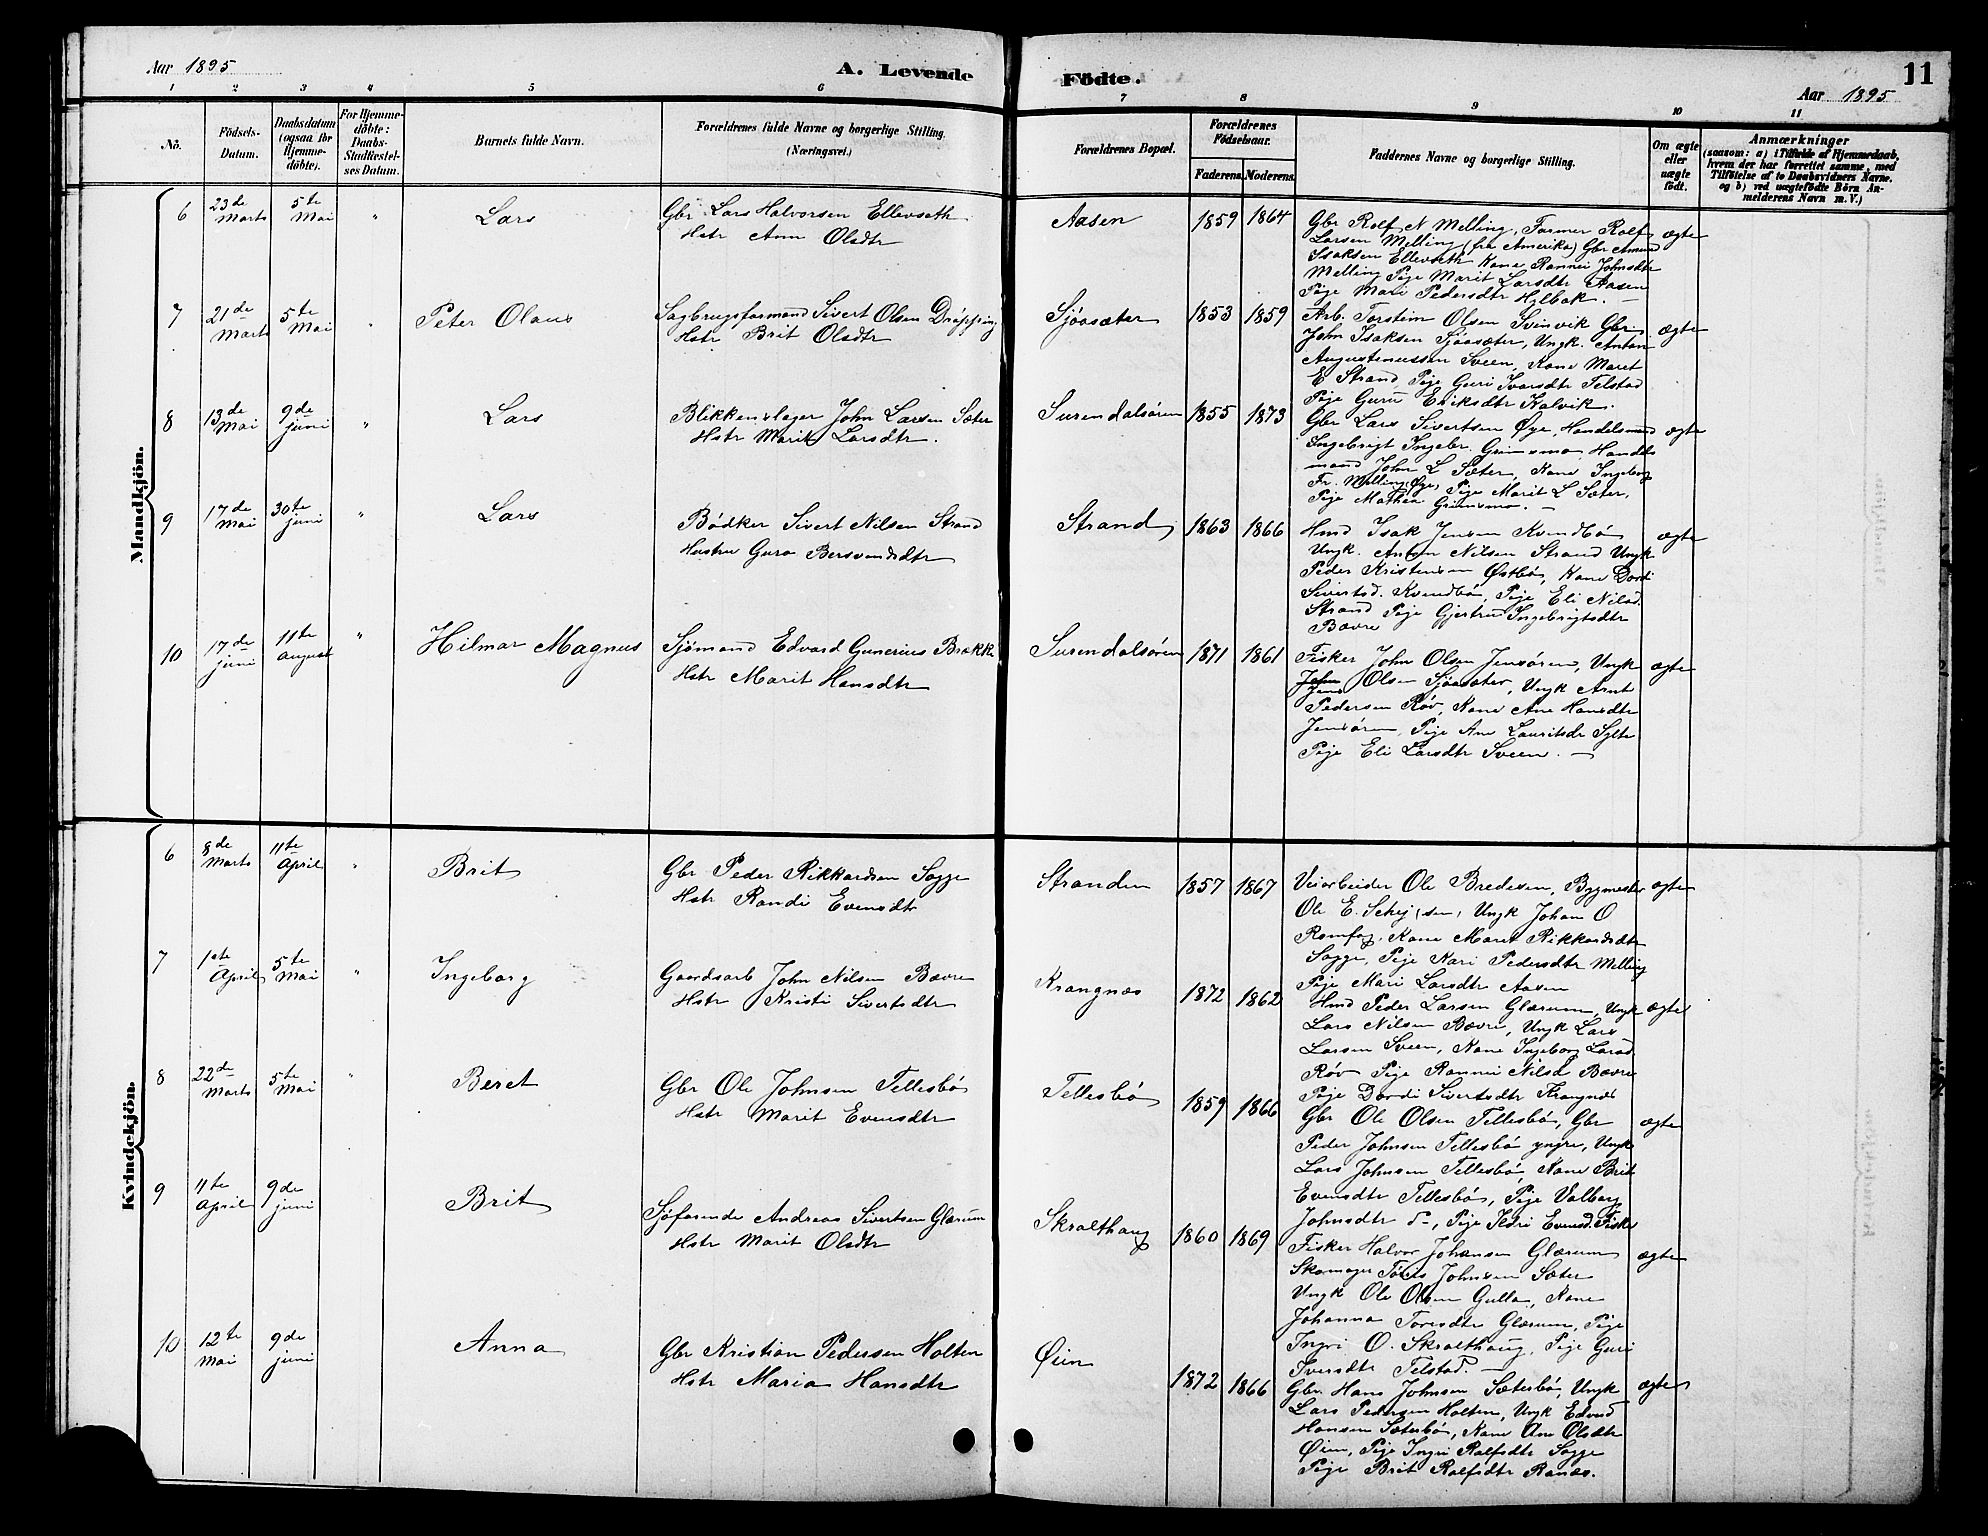 Aar 1895
A. Levende
Fødte.
11
Aar 1895
1 2 3 4 5 6 7 8 9 10 11
No.
Födsels-
Datum.
Daabsdatum
(ogsaa for
Hjemme-
döbte).
For Hjemme-
döbte:
Daabs-
Stadfæstel-
ses Datum.
Barnets fulde Navn.
Forældrenes fulde Navne og borgerlige Stilling.
(Næringsvei.)
Forældrenes Bopæl.
Forældrenes
Födselsaar.
Faderens. Moderens.
Faddernes Navne og borgerlige Stilling.
Om ægte
eller
uægte
födt.
Anmærkninger
(saasom: a) i Tilfælde af Hjemmedaab,
hvem der har forrettet samme, med
Tilföielse af to Daabsvidners Navne,
og b) ved uægtefödte Börn An-
melderens Navn m. V.)
Mandkjön.
6
23de
Marts
5te
Mai
"
Lars
Gbr Lars Halvorsen Ellevseth
Hstr Ann Olsdtr
Aasen
1859 1864
Gbr Rolf N Melling, Farmer Rolf
Larsen Melling (fra Amerika) Gbr Amund
Isaksen Ellevseth Kone Rannei Johnsdtr
Melling Pige Marit Larsdtr Aasen
Pige Mari Pedersdtr Hylbak. —
ægte
7
21de
Marts
5te
Mai
"
Peter Olaus
Sagbrugsformand Sivert Olsen Dröpping
Hstr Brit Olsdtr
Sjöasæter
1853 1859
Arb. Torstein Olsen Svinvik Gbr
John Isaksen Sjöasæter, Ungk. Anton
Augustinussen Sveen, Kone Maret
E Strand, Pige Guri Ivarsdtr Telstad
Pige Guru Eriksdtr Kalvik.
ægte
8
13de
Mai
9de
juni
"
Lars
Blikkenslager John Larsen Sæter
Hstr Marit Larsdtr.
Surendalsören
1855 1873
Gbr Lars Sivertsen Øye, Handelsmand
Ingebrigt Ingebr. Grimsmo, Handels
mand John L Sæter, Kone Ingeborg
Fr. Melling Øye, Pige Marit L Sæter,
Pige Mathea Grimsmo. —
ægte
9
17de
Mai
30te
juni
"
Lars
Bödker Sivert Nilsen Strand
Hustru Guro Bersvendsdtr
Strand
1863 1866
Hmd Isak Jensen Kvendbö
Ungk. Anton Nilsen Strand Ungk
Peder Kristensen Østbö, Kone Dordi
Sivertsd. Kvendbö, Pige Eli Nilsd.
Strand Pige Gjertru Ingebrigtsdtr
Bævre
ægte
10
17de
juni
11te
august
"
Hilmar Magnus
Sjömand Edvard Gunerius Brække
Hstr Marit Hansdtr
Surendalsören
1871 1861
Fisker John Olsen Jensören, Ungk
John
Jens Olsen Sjöasæter, Ungk Arnt
Pedersen Röv, Kone Ane Hansdtr
Jensören, Pige Ane Lauritsdr Sylte
Pige Eli Larsdtr Sveen. —
ægte
Kvindekjön.
6
8de
Marts
11te
April
"
Brit
Gbr Peder Rikkardsen Sogge
Hstr Randi Evensdtr
Stranden
1857 1867
Veiarbeider Ole Bredesen, Bygmester
Ole E. Schej, Ungk Johan O
Romfog, Kone Maret Rikkardsdtr
Sogge, Pige Kari Pedersdtr Melling
Pige Mari Larsdtr Aasen
ægte
7
1ste
April
5te
Mai
"
Ingeborg
Gaardsarb John Nilsen Bævre
Hstr Kristi Sivertsdtr
Krangnæs
1872 1862
Hmd Peder Larsen Glærum, Ungk
Lars Nilsen Bævre, Ungk Lars
Larsen Sveen, Kone Ingeborg Larsd.
Röv Pige Rannei Nilsd Bævre
Pige Dordi Sivertsdtr Krangnæs
ægte
8
22de
Marts
5te
Mai
"
Beret
Gbr Ole Johnsen Tellesbö
Hstr Marit Evensdtr
Tellesbö
1859 1866
Gbr Ole Olsen Tellesbö, Gbr
Peder Johnsen Tellesbö yngre, Ungk
Lars Johnsen Tellesbö Kone Brit
Evensdtr Tellesbö, Pige Valborg
Johnsdtr do, Pige Ildri Evensd. Fiske
ægte
9
11te
April
9de
juni
Brit
Sjöfarende Andreas Sivertsen Glærum
Hstr Marit Olsdtr
Skralthaug
1860 1869
Fisker Halvor Johansen Glærum
Skomager Töris Johnsen Sæter
Ungk Ole Olsen Gulla, Kone
Johanna Toresdtr Glærum, Pige
Ingri O. Skralthaug, Pige Guri
Iversdtr Telstad. —
ægte
10
12te
Mai
9de
juni
Anna
Gbr Kristian Pedersen Holten
Hstr Maria Hansdtr
Øien
1872 1866
Gbr Hans Johnsen Sæterbö, Ungk
Lars Pedersen Holten, Ungk Edvard
Hansen Sæterbö, Kone Ane Olsdtr
Øien, Pige Ingri Rolfsdtr Sogge
Pige Brit Rolfsdtr Ranæs.
ægte